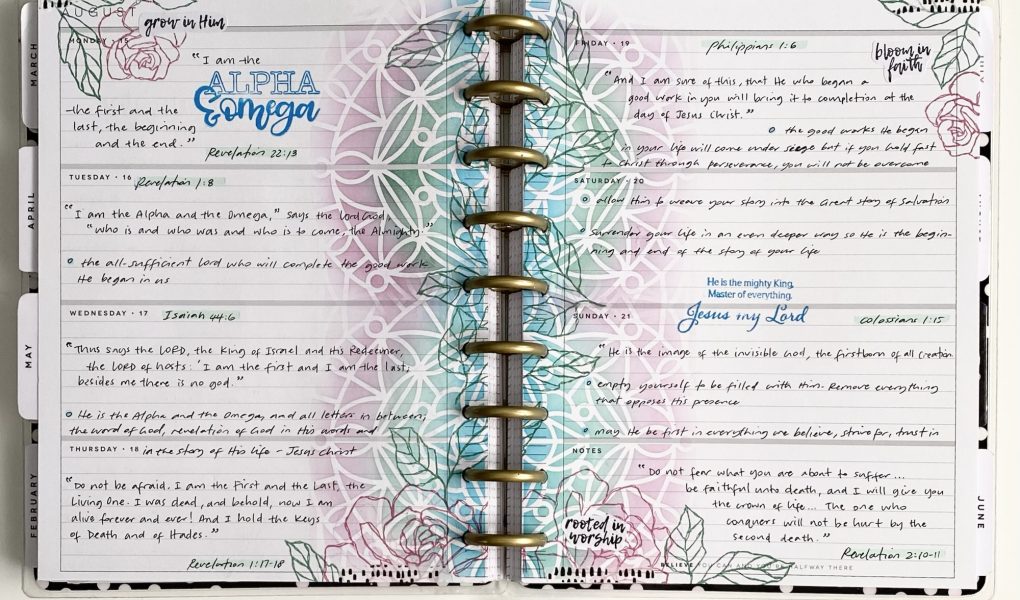 AUGUST
grow in Him
MARCH
MONDAY
"I am the
ALPHA
& Omega
the first and the
last, the beginning
and the end."
Revelation 22:13
APRIL
TUESDAY • 16 Revelation 1:8
"I am the Alpha and the Omega," says the Lord God,
"who is and who was and who is to come, the Almighty."
the all-sufficient Lord who will complete the good work
He began in us
MAY
WEDNESDAY • 17 Isaiah 44:6
"Thus says the LORD, the King of Israel and His Redeemer,
the LORD of hosts: 'I am the first and I am the last,
besides me there is no god."
He is the Alpha and the Omega, and all letters in between;
the word of God, revelation of God in His words and
FEBRUARY
THURSDAY • 18 in the story of His life - Jesus Christ
"Do not be afraid. I am the First and the Last, the
Living One. I was dead, and behold, now I am
alive forever and ever! And I hold the keys
of Death and of Hades."
Revelation 1:17-18
FRIDAY • 19 Philippians 1:6
bloom in
faith
JULY
"And I am sure of this, that He who began a
good work in you will bring it to completion at the
day of Jesus Christ."
the good works He began
in your life will come under siege but if you hold fast
to Christ through perseverance, you will not be overcome
SATURDAY • 20
allow Him to weave your story into the Great story of Salvation
Surrender your life in an even deeper way so He is the begin-
ning and end of the story of your life
He is the mighty King,
Master of everything.
Jesus my Lord
SUNDAY • 21 Colossians 1:15
"He is the image of the invisible God, the firstborn of all Creation.
empty yourself to be filled with Him. Remove everything
that opposes His presence
may He be first in everything we believe, strive for, trust in
JUNE
NOTES
"Do not fear what you are about to suffer...
be faithful unto death, and I will give you
the crown of life... The one who
conquers will not be hurt by the
second death."
rooted in
worship
Revelation 2:10-11
BELIEVE YOU CAN AND YOU'RE HALFWAY THERE